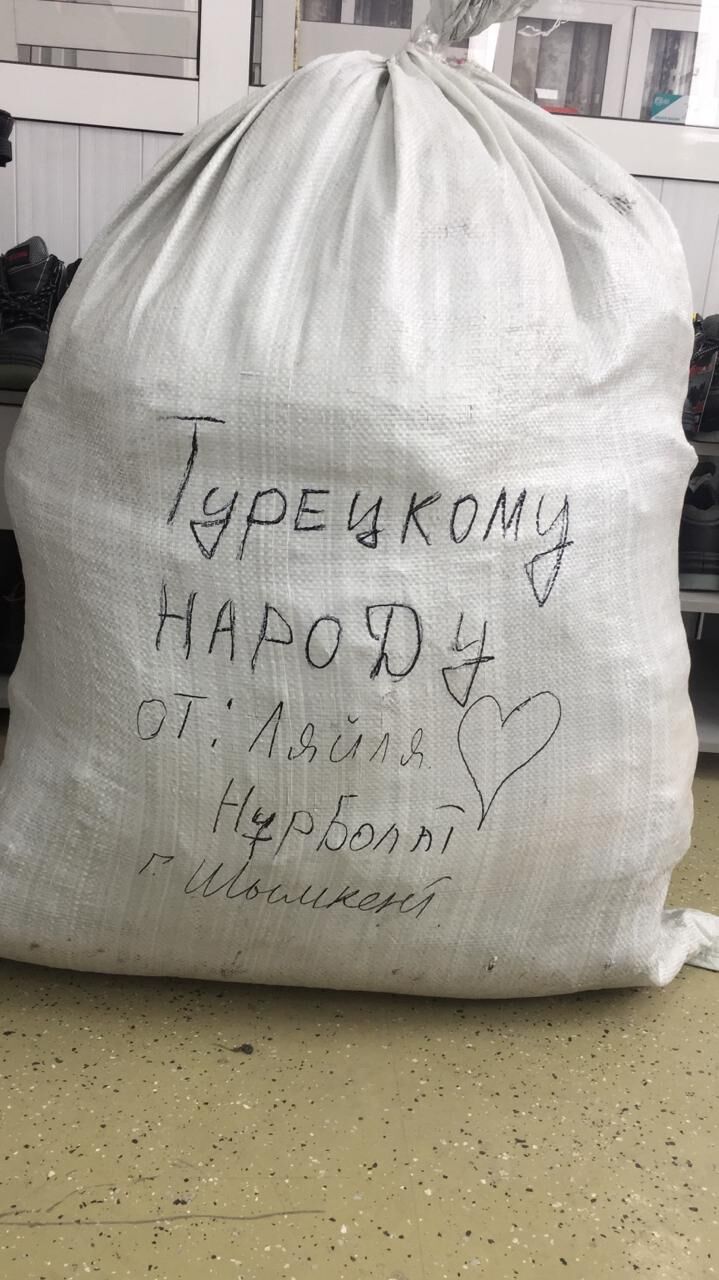 Турецкому
народу
от: Ляйля
Нұрболат
г. Шымкент